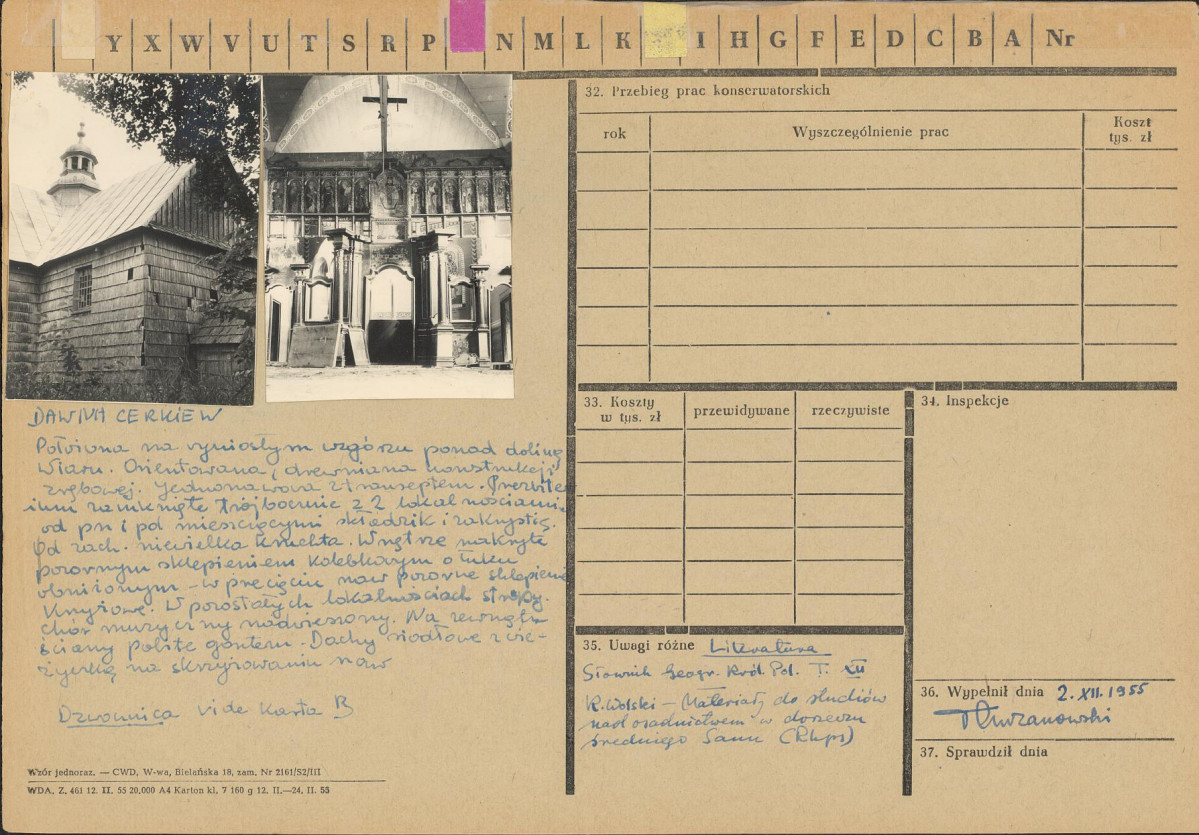 Y X W V U T S R P N M L K I H G F E D C B A Nr
DAWNA CERKIEW
Położona na wyniosłym wzgórzu ponad doliną
Wiaru. Orientowana, drewniana konstrukcji
zrębowej. Jednonawowa z transeptem. Prezbite-
rium zamknięte trójbocznie z 2 lokalnościami
od pn i pd mieszczącymi składzik i zakrystię.
Od zach. niewielka kruchta. Wnętrze nakryte
pozornym sklepieniem kolebkowym o łuku
obniżonym - w przecięciu naw pozorne sklepienie
krzyżowe. W pozostałych lokalnościach stropy.
Chór muzyczny nadwieszony. Na zewnątrz
ściany pobite gontem. Dachy siodłowe z wie-
życzką na skrzyżowaniu naw
Dzwonnica vide Karta B
Wzór jednoraz. — CWD, W-wa, Bielańska 18, zam. Nr 2161/S2/III
WDA. Z. 461 12. II. 55 20,000 A4 Karton kl. 7 160 g 12. II.—24. II. 55
32. Przebieg prac konserwatorskich
rok Wyszczególnienie prac Koszt
tys. zł
33. Koszty
w tys. zł przewidywane rzeczywiste
34. Inspekcje
35. Uwagi różne Literatura
Słownik Geogr. Król. Pol. T. XII
K. Wolski - Materiały do studiów
nad osadnictwem w dorzeczu
średniego Sanu (Rkps)
36. Wypełnił dnia 2.XII.1955
37. Sprawdził dnia